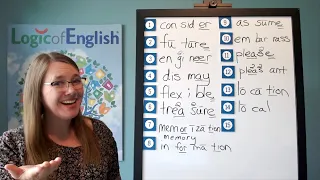 Logic of English
1 con sid er
2 fū tūre
3 en gi neer
4 dis may
5 flex i ble
6 trea sure
7 mem or ī zā tion
memory
8 in for mā tion
9 as sūme
10 em bar rass
11 please
12 pleas ant
13 lō cā tion
14 lō cal
15